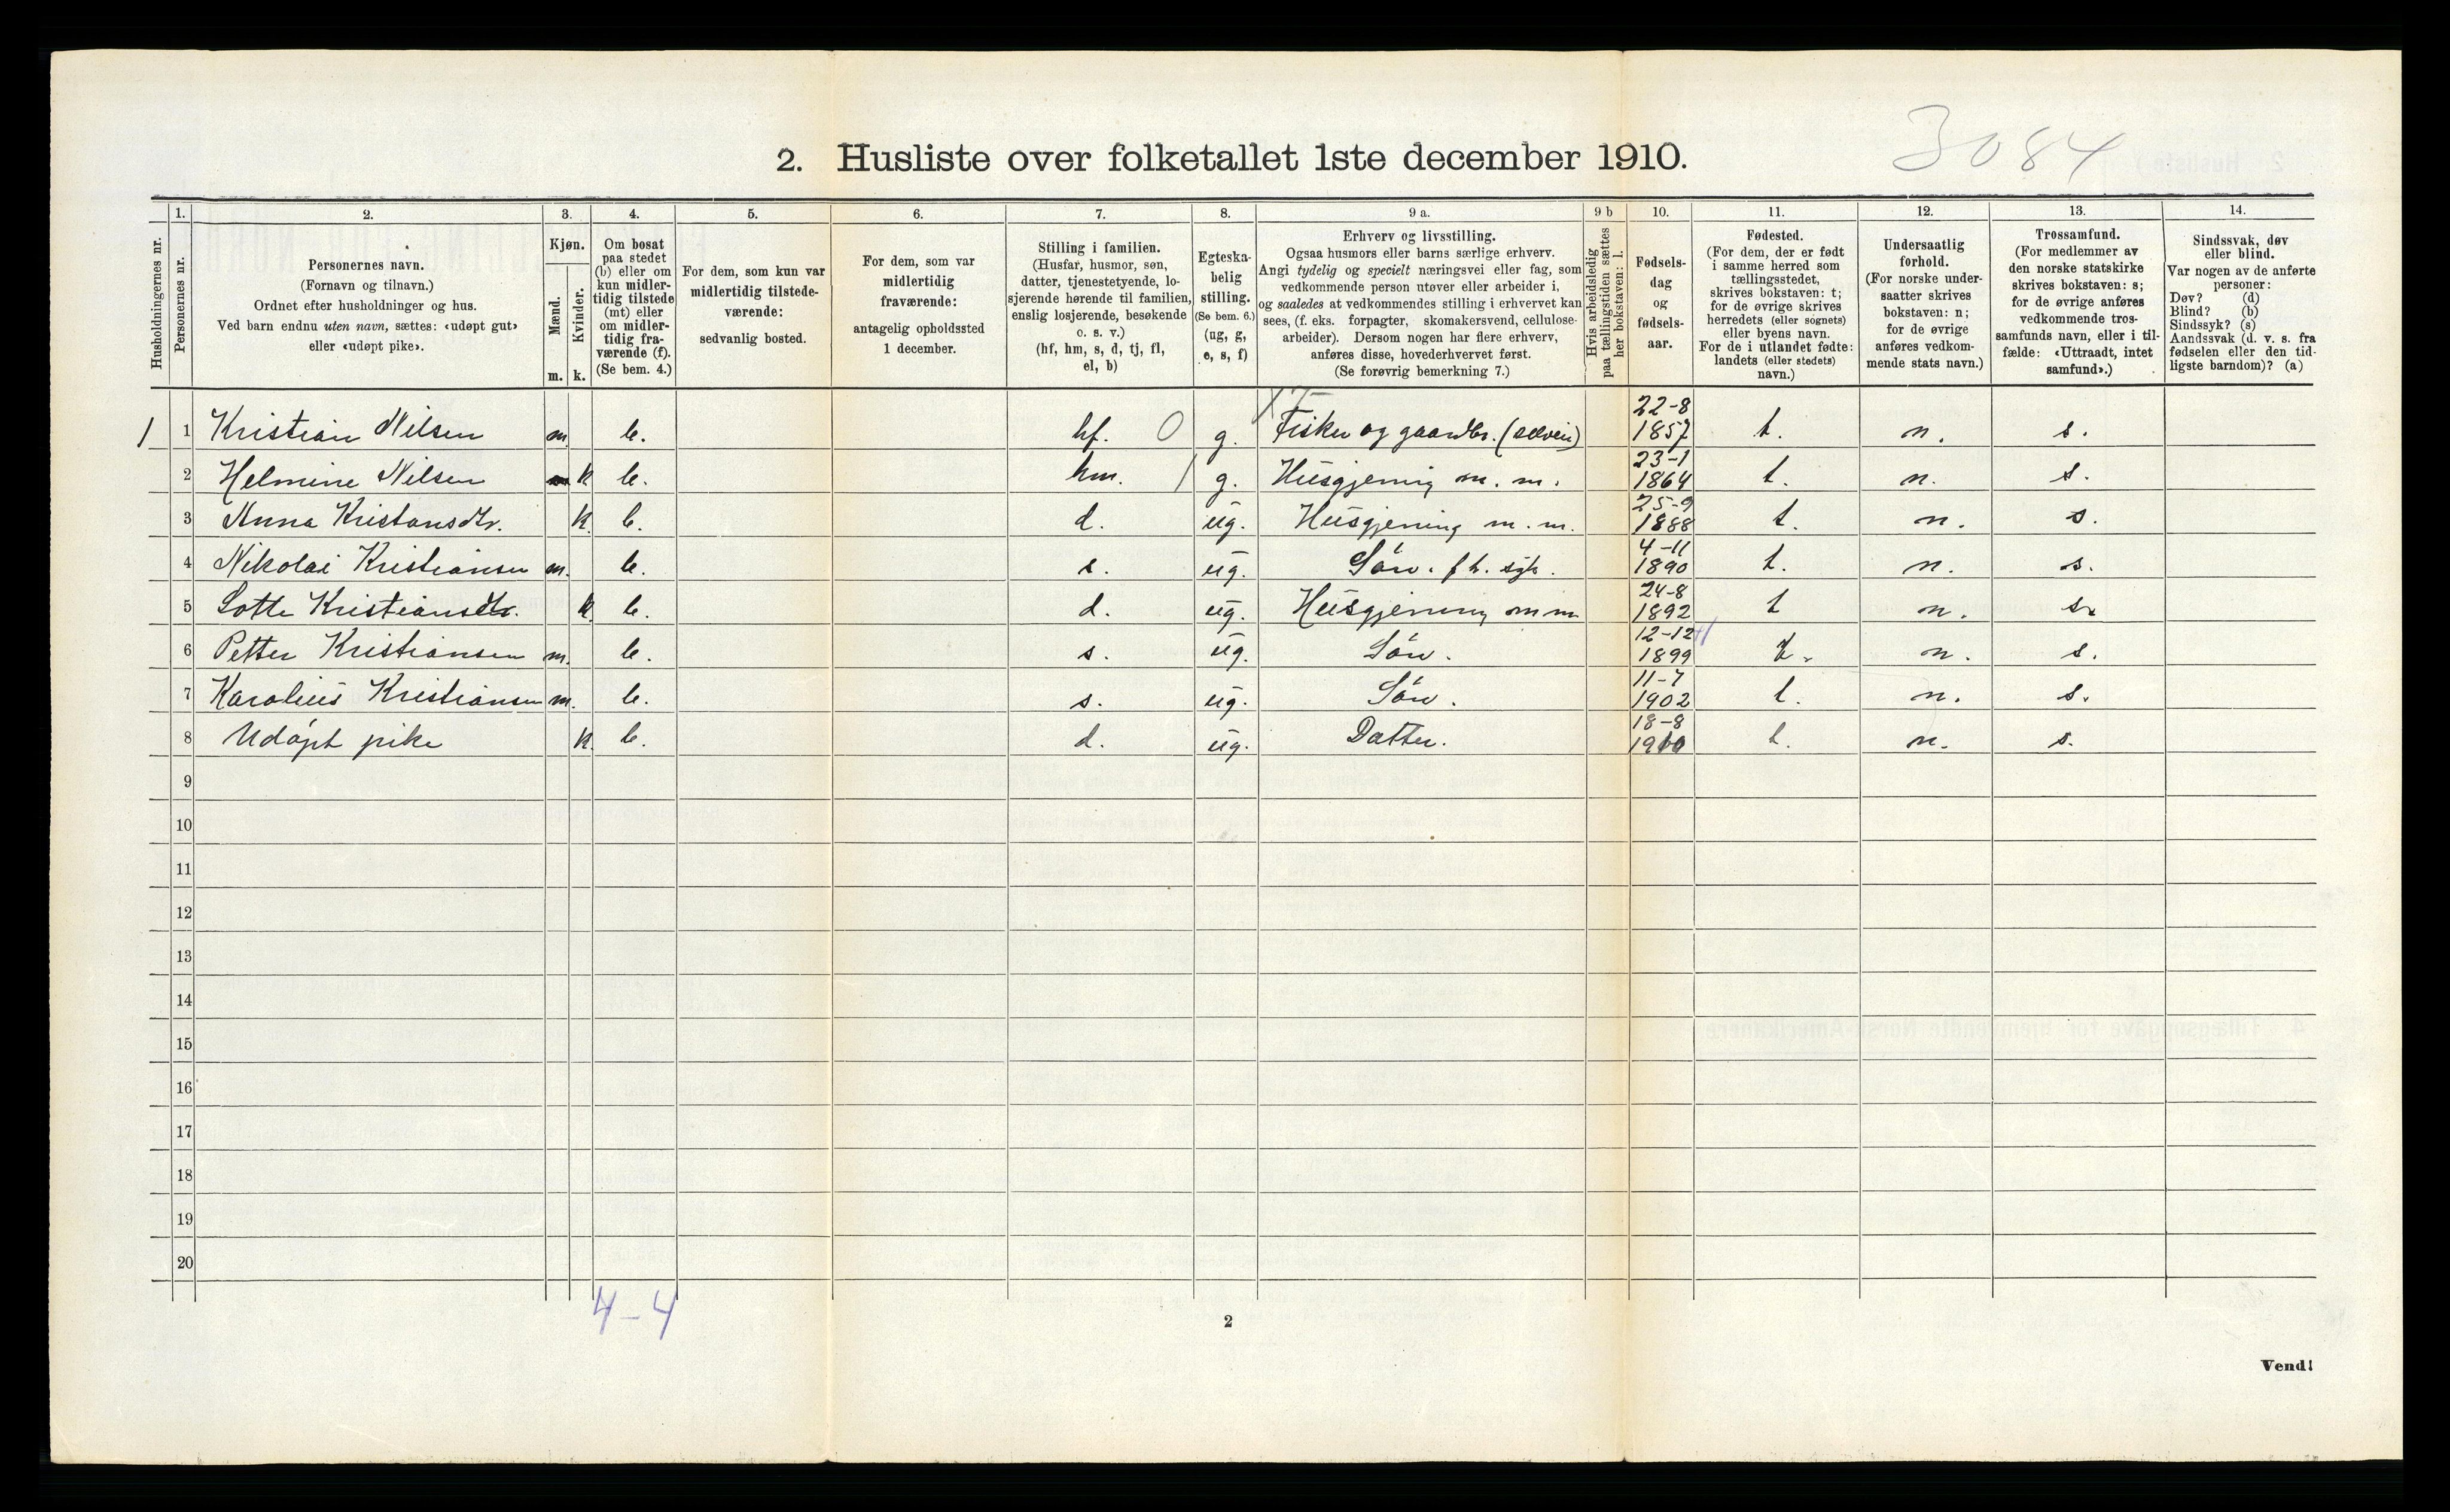 3084
2. Husliste over folketallet 1ste december 1910.
Husholdningernes nr.
1.
Personernes nr.
2.
Personernes navn.
(Fornavn og tilnavn.)
Ordnet efter husholdninger og hus.
Ved barn endnu uten navn, sættes: «udøpt gut»
eller «udøpt pike».
3.
Kjøn.
Mænd.
Kvinder.
m. k.
4.
Om bosat
paa stedet
(b) eller om
kun midler-
tidig tilstede
(mt) eller
om midler-
tidig fra-
værende (f).
(Se bem. 4.)
5.
For dem, som kun var
midlertidig tilstede-
værende:
sedvanlig bosted.
6.
For dem, som var
midlertidig
fraværende:
antagelig opholdssted
1 december.
7.
Stilling i familien.
(Husfar, husmor, søn,
datter, tjenestetyende, lo-
sjerende hørende til familien,
enslig losjerende, besøkende
o. s. v.)
(hf, hm, s, d, tj, fl,
el, b)
8.
Egteska-
belig
stilling.
(Se bem. 6.)
(ug, g,
e, s, f)
9 a.
Erhverv og livsstilling.
Ogsaa husmors eller barns særlige erhverv.
Angi tydelig og specielt næringsvei eller fag, som
vedkommende person utøver eller arbeider i,
og saaledes at vedkommendes stilling i erhvervet kan
sees, (f. eks. forpagter, skomakersvend, cellulose-
arbeider). Dersom nogen har flere erhverv,
anføres disse, hovederhvervet først.
(Se forøvrig bemerkning 7.)
9 b
Hvis arbeidsledig
paa tællingstiden sættes
her bokstaven: l.
10.
Fødsels-
dag
og
fødsels-
aar.
11.
Fødested.
(For dem, der er født
i samme herred som
tællingsstedet,
skrives bokstaven: t;
for de øvrige skrives
herredets (eller sognets)
eller byens navn.
For de i utlandet fødte:
landets (eller stedets)
navn.)
12.
Undersaatlig
forhold.
(For norske under-
saatter skrives
bokstaven: n;
for de øvrige
anføres vedkom-
mende stats navn.)
13.
Trossamfund.
(For medlemmer av
den norske statskirke
skrives bokstaven: s;
for de øvrige anføres
vedkommende tros-
samfunds navn, eller i til-
fælde: «Uttraadt, intet
samfund».)
14.
Sindssvak, døv
eller blind.
Var nogen av de anførte
personer:
Døv? (d)
Blind? (b)
Sindssyk? (s)
Aandssvak (d. v. s. fra
fødselen eller den tid-
ligste barndom)? (a)
1 1 Kristian Nilsen m. b. hf. 0 g. Fisker og gaardbr. (selveier) 22-8 1857 t. n. s.
2 Helmine Nilsen k b. hm. 1 g. Husgjerning m. m. 23-1 1864 t. n. s.
3 Anna Kristansdtr. k. b. d. ug. Husgjerning m. m. 25-9 1888 t. n. s.
4 Nikolai Kristiansen m. b. s. ug. Søn. 4-11 1890 t. n. s.
5 Lotte Kristiansdtr. k. b. d. ug. Husgjerning m m 24-8 1892 t n. s.
6 Petter Kristiansen m. b. s. ug. Søn. 12-12 1899 t. n. s.
7 Karolius Kristiansen m. b. s. ug. Søn. 11-7 1902 t. n. s.
8 Udøpt pike k. b. d. ug. Datter. 18-8 1910 t. n. s.
9
10
11
12
13
14
15
16
17
18
19
20
4-4
2
Vend!